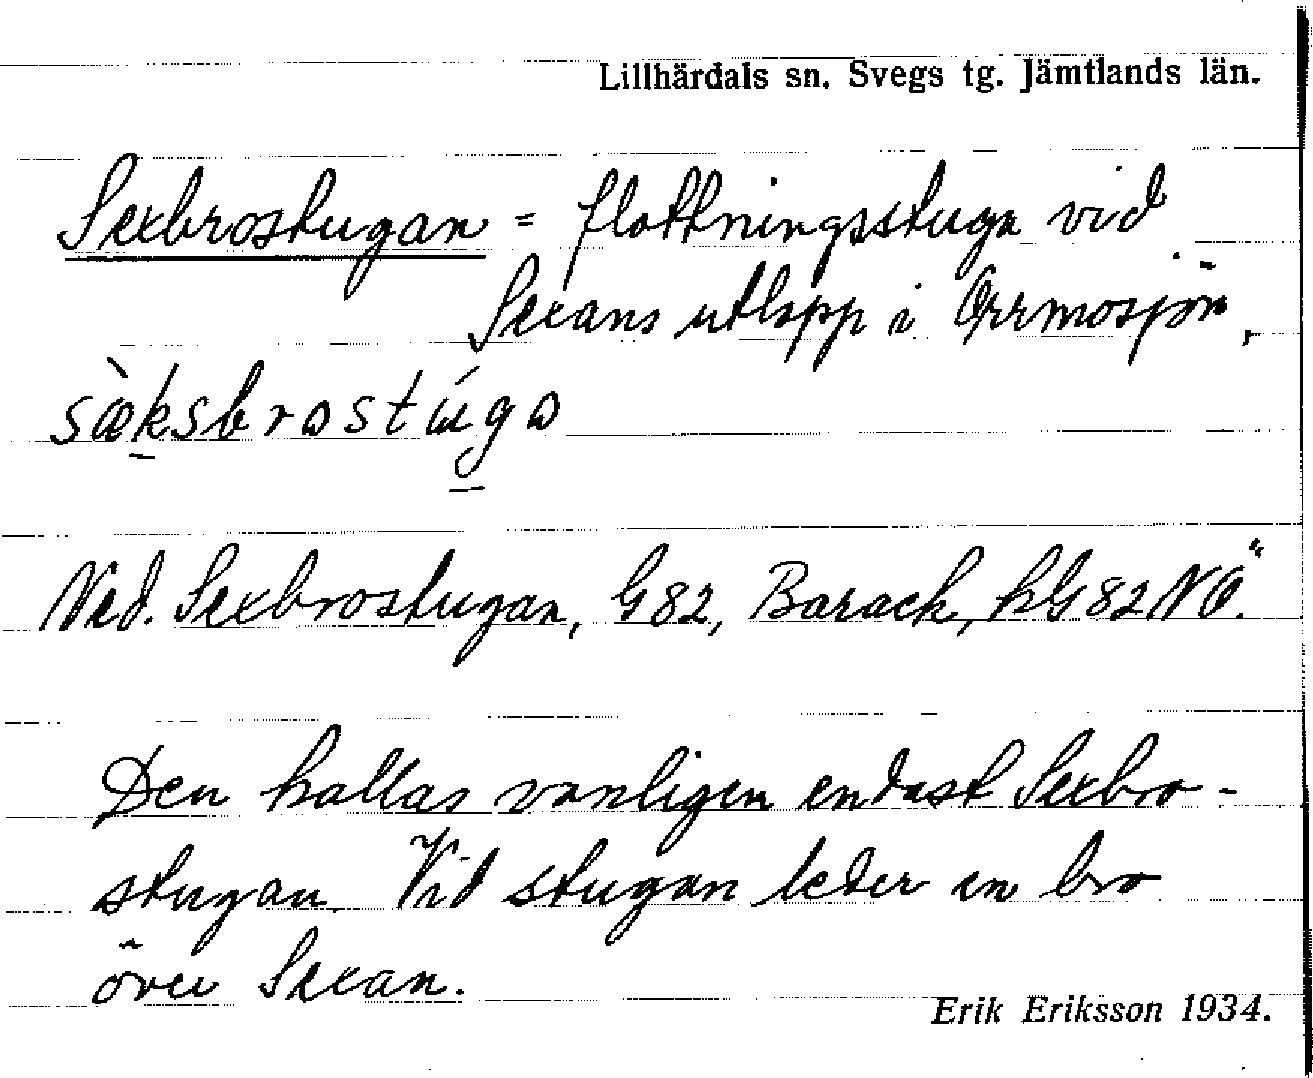 Lillhärdals sn. Svegs tg. Jämtlands län.
Sexbrostugan = flottningsstuga vid
Sexans utlopp i Orrmosjön.
sæ̀ksbrostúgɷ
Ned. Sexbrostugan, G82, Barack, kG82NÖ.
Den kallas vanligen endast Sexbro-
stugan. Vid stugan leder en bro
över Sexan.
Erik Eriksson 1934.